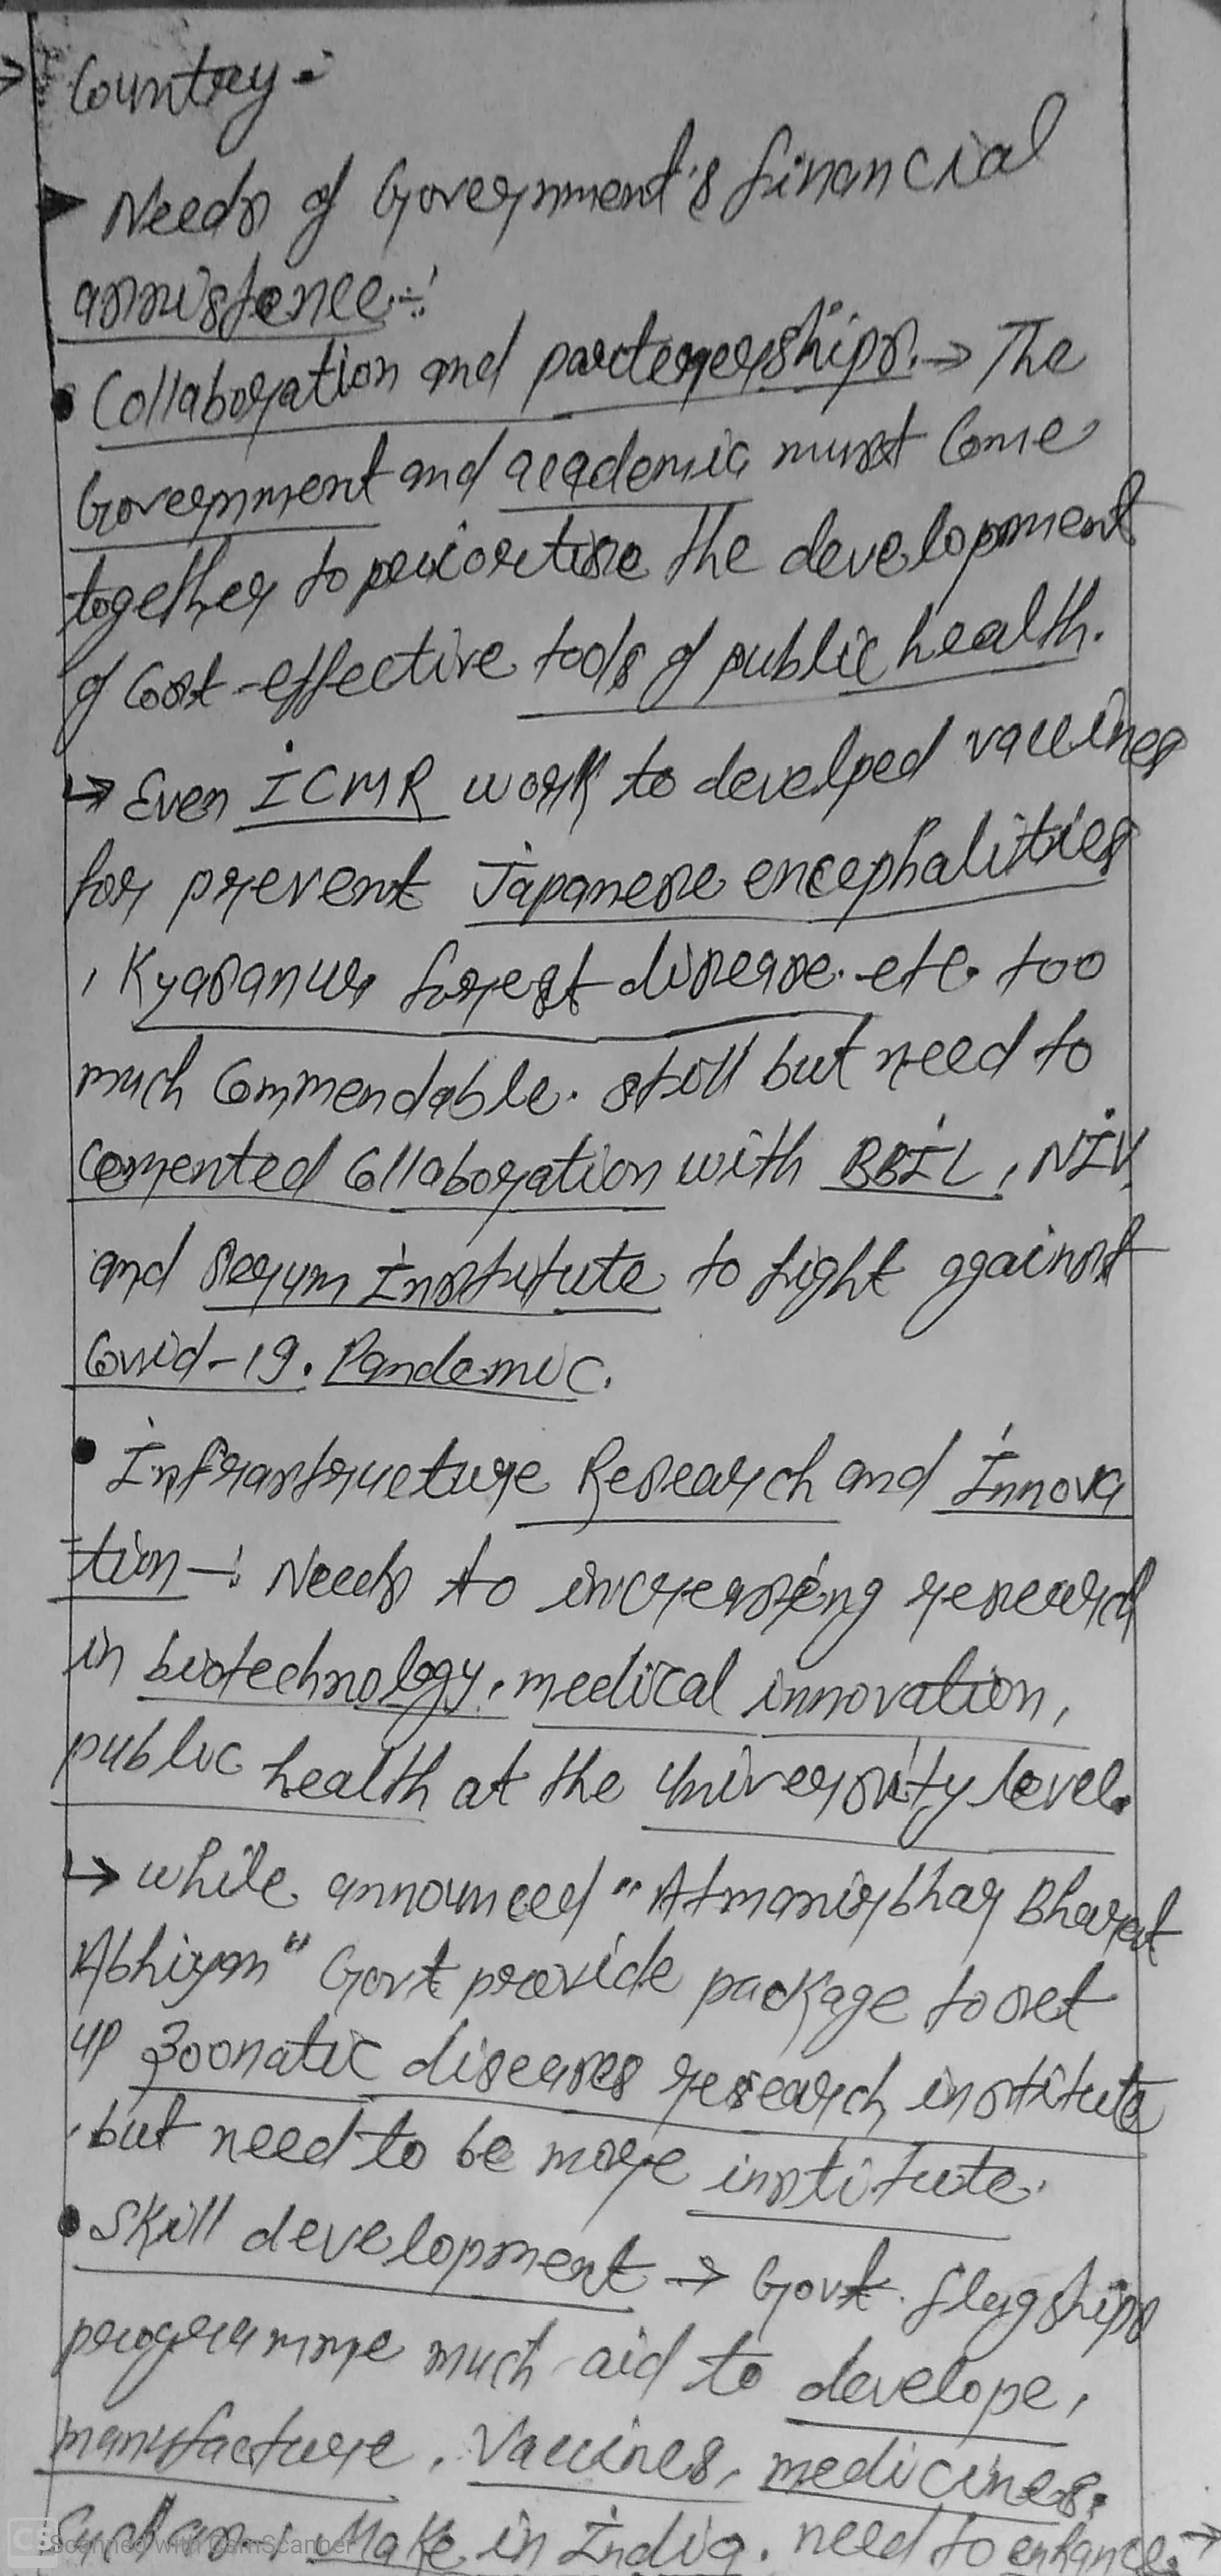 → Country :-
► Needs of Government's financial
assistance :-
• Collaboration and partenerships. → The
Government and academic must come
together to prioritise the development
of cost-effective tools of public health.
↳ Even ICMR work to develped vaccines
for prevent Japanese encephalities
, Kyasanur forest disease. etc. too
much commendable. still but need to
cemented collaboration with BBIL, NIV,
and Serum Institute to fight against
Covid-19. Pandemic.
• Infrastructure Research and Innova
tion -: Needs to increasing research
in biotechnology, medical innovation,
public health at the university level.
↳ while announced "Atmanirbhar Bharat
Abhiyan" Govt provide package to set
up zoonatic diseases research institute
, but need to be more institute.
• Skill development → Govt. flagships
programme much aid to develope,
manufacture, Vaccines, medicines.
Such as, Make in India. need to enhance. →
CS Scanned with CamScanner